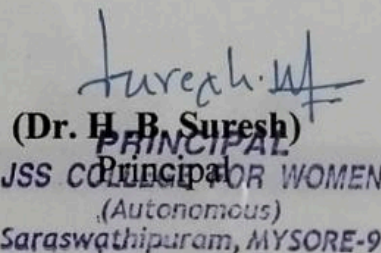 Suresh.
(Dr. H. B. Suresh)
PRINCIPAL
Principal
JSS COLLEGE FOR WOMEN
(Autonomous)
Saraswathipuram, MYSORE-9